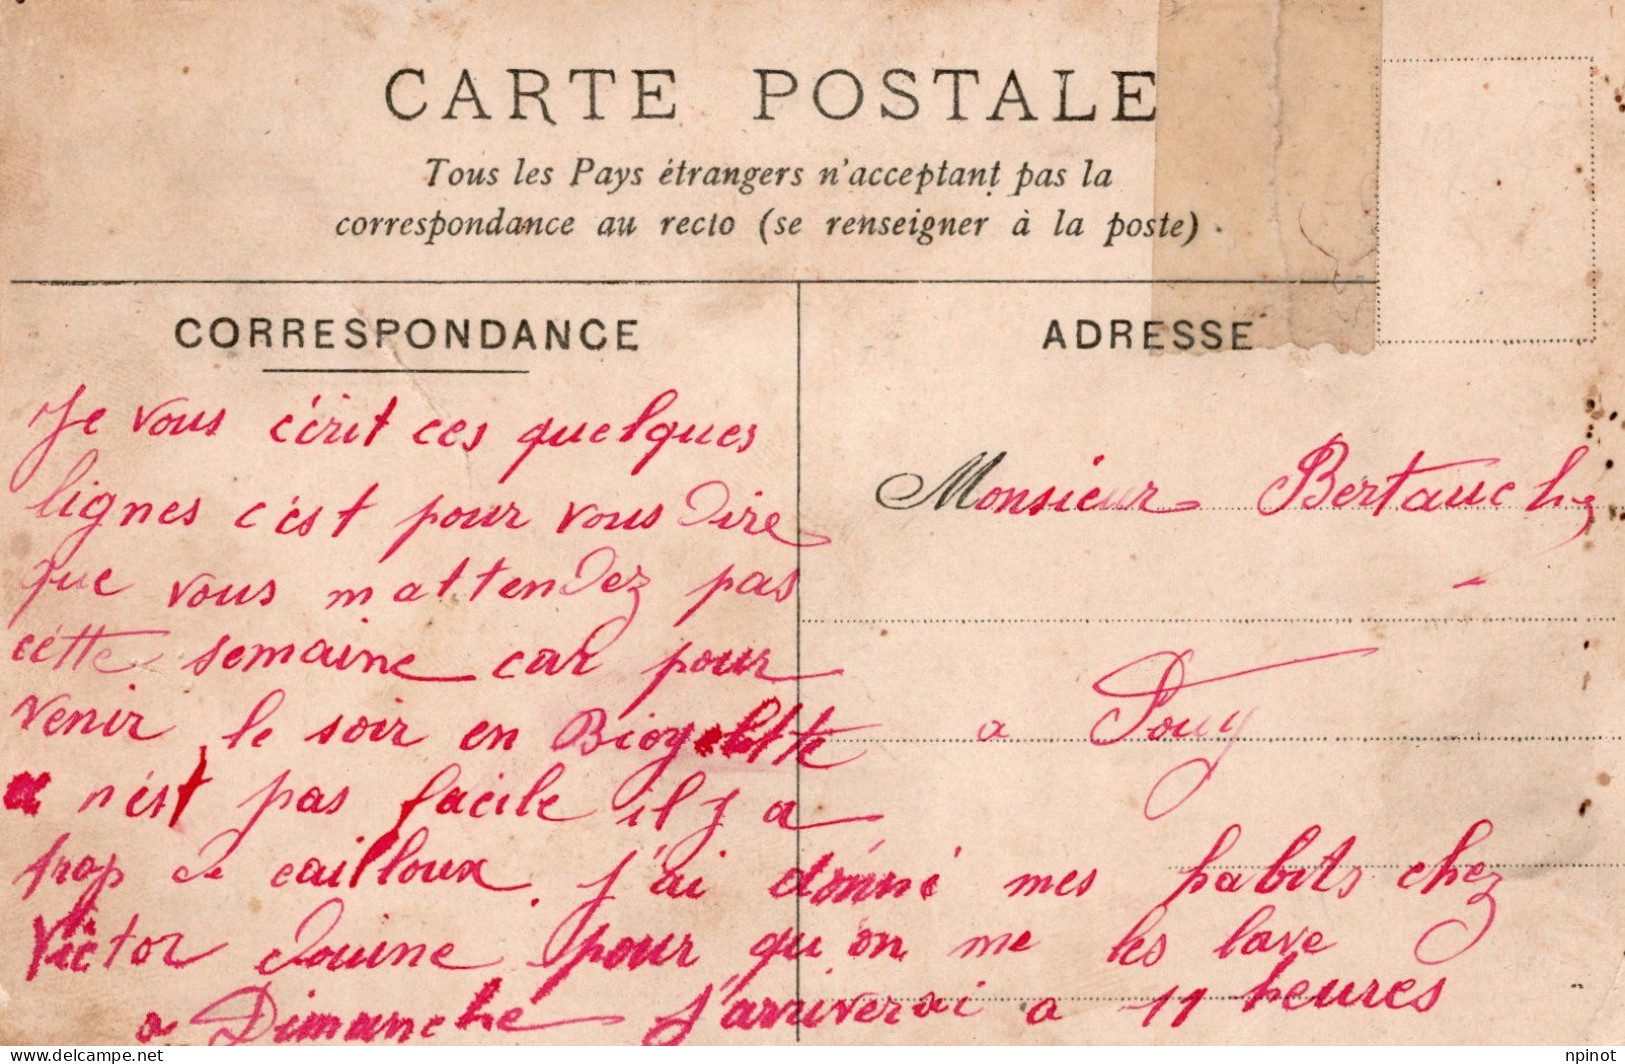 CARTE POSTALE
Tous les Pays étrangers n'acceptant pas la
correspondance au recto (se renseigner à la poste)
CORRESPONDANCE
ADRESSE
Je vous écrit ces quelques
lignes c'est pour vous dire
que vous mattendez pas
cette semaine car pour
venir le soir en Bicyclette
n'est pas facile il y a
trop de cailloux. j'ai donné mes habits chez
Victor Douine pour qu'on me les lave
a Dimanche J'arriverai a 11 heures
Monsieur Bertauche
a Pouy
delcampe.net
npinot